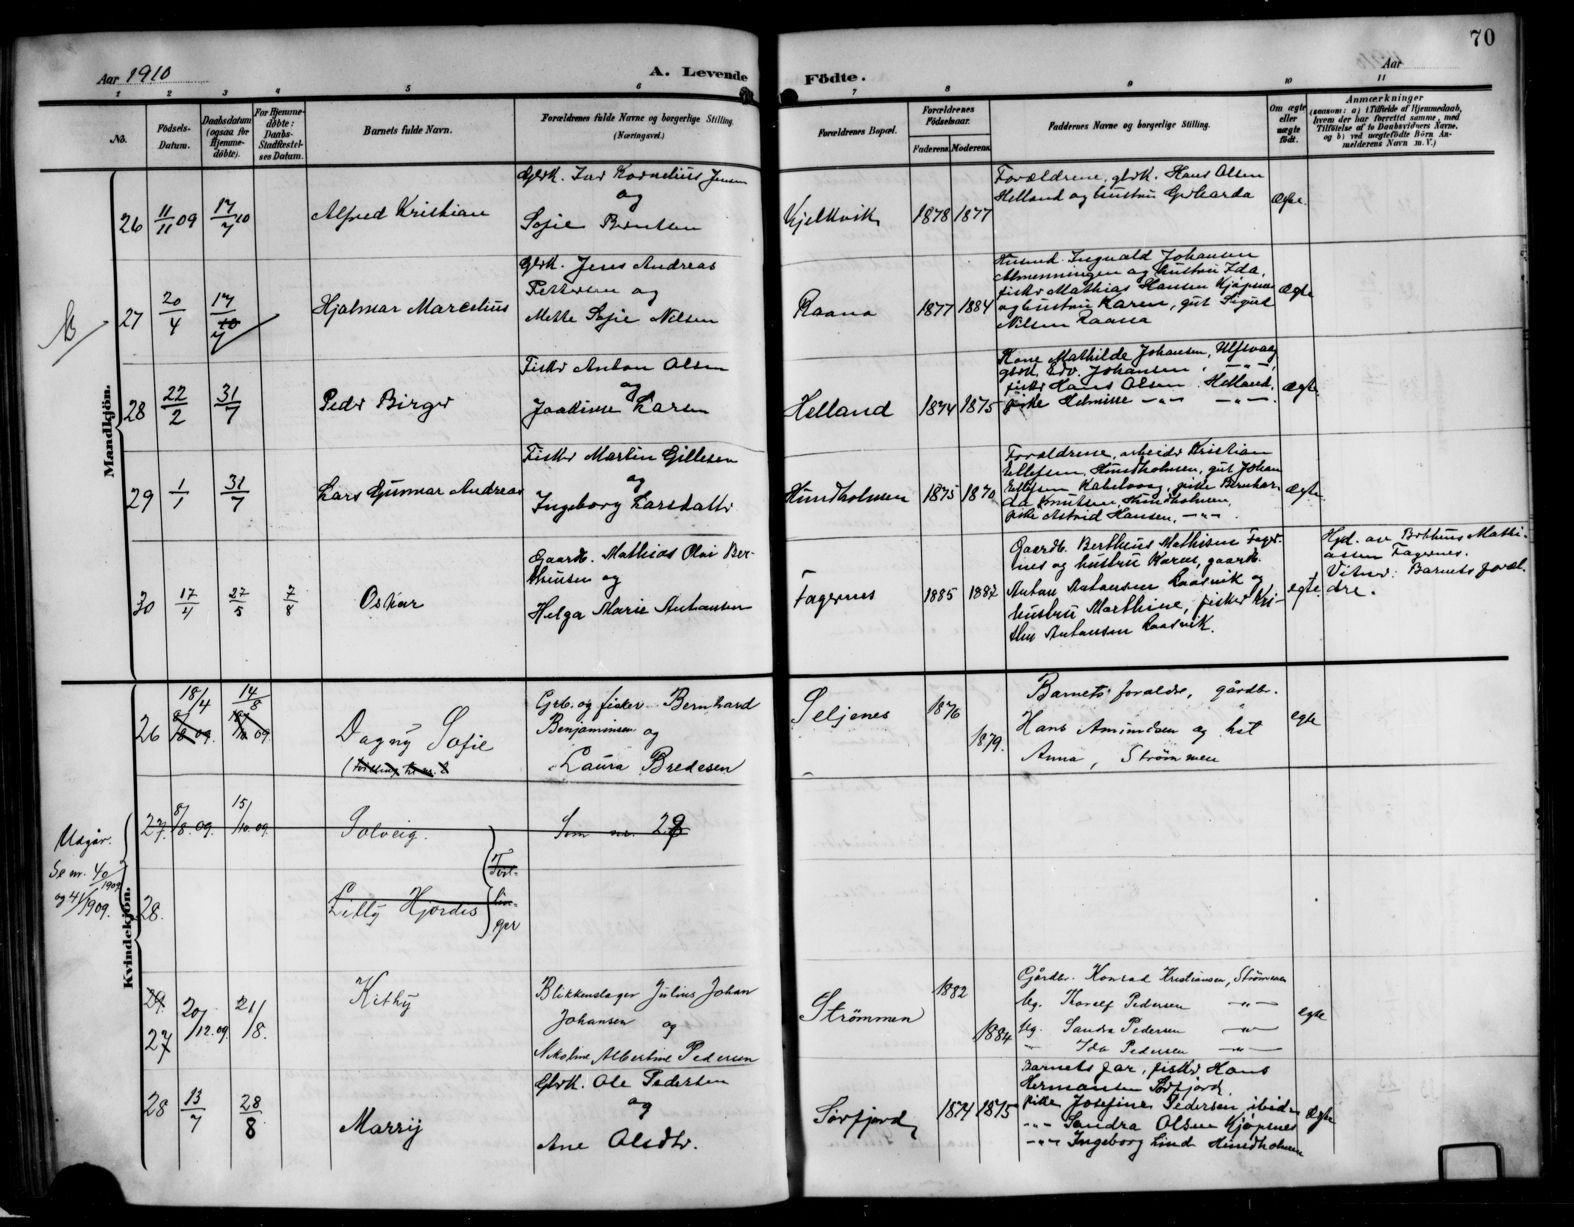 70
Aar 1910
A. Levende Födte.
Aar
1 2 3 4 5 6 7 8 9 10 11
No.
Födsels-Datum.
Daabsdatum (ogsaa for Hjemmedöbte).
For Hjemmedöbte: Daabs-Stadfæstelses Datum.
Barnets fulde Navn.
Forældrenes fulde Navne og borgerlige Stilling. (Næringsvei.)
Forældrenes Bopæl.
Forældrenes Födselsaar.
Faderens. Moderens.
Faddernes Navne og borgerlige Stilling.
Om ægte eller uægte födt.
Anmærkninger
(saasom: a) i Tilfælde af Hjemmedaab, hvem der har forrettet samme, med Tilföielse af to Daabsvidners Navne, og b) ved uægtefödte Börn Anmelderens Navn m. V.)
Mandkjön.
26 11/11 09 17/7 10 Alfred Kristian
Gbrk. Ivar Kornelius Jensen
og
Sofie Berntsen
Kjelkvik 1878 1877
Forældrene, gbrk. Hans Olsen
Helland og hustru Gerharda
Ægte.
27 20/4 17/7 Hjalmar Marcelius
Gbrk. Jens Andreas
Pettersen og
Mette Sofie Nilsen
Raana 1877 1884
Husmd. Ingvald Johansen
Almenningen og hustru Ida,
fisker Mathias Hansen Kjøpsnes
og hustru Karen, gut Sigurd
Nilsen Raana
Ægte
28 22/2 31/7 Peder Birger
Fisker Anton Olsen
og
Joakime Larsen
Helland 1874 1875
Kone Mathilde Johansen, Ulfsvaag
gbrk. Edv. Johansen, —"—,
fisker Hans Olsen Helland,
pike Helmine —"— —"—.
Ægte.
29 1/1 31/7 Lars Gunnar Andreas
Fisker Martin Gillesen
og
Ingeborg Larsdatter
Hundholmen 1875 1870
Forældrene, arbeider Kristian
Ellefsen, Hundholmen, gut Johan
Ellefsen Kabelvaag, pike Bernhar-
da Knutsen, Hundholmen,
pike Astrid Hansen, —"—.
Ægte
30 17/4 27/5 7/8 Oskar
Gaardb. Mathias Olai Ber-
thiusen og
Helga Marie Antonsen
Fagernes 1885 1882
Gaardb. Bertheus Mathisen Fager-
nes og hustru Karen, gaardb.
Anton Antonsen Raasvik og
hustru Marthine, fisker Kri-
Antonsen Raasvik.
egte
Hjd. av Bertheus Mathi-
assen Fagernes.
Vitner: Barnets foræl-
dre.
Kvindekjön.
26 18/4 14/8
8/8 09. 15/10 09.
Dagny Sofie
Grb. og fisker Bernhard
Benjaminsen og
Laura Bredesen
Seljenes 1876 1879.
Barnets forældre, gårdbr.
Hans Amundsen og hst
Anna, Strømmen
egte
Udgår.
Se nr. 40/1909
og 41/1909.
27. 8/8. 09. 15/10. 09. Solveig. Som nr. 29
28. Lilly Hjørdis
Tvil-
lin-
ger
29.
27 20/12. 09. 21/8. Kitty
Blikkenslager Julius Johan
Johansen og
Nikoline Albertine Pedersen
Strømmen 1882 1884
Gårdbr. Konrad Kristiansen, Strømmen
Ug. Thoralf Pedersen —"—
Ug. Sandra Pedersen —"—
" Ida Pedersen —"—
egte
28 13/7 28/8 Marry
Gbrk. Ole Pedersen
og
Ane Olsdtr.
Sørfjord 1874 1875
Barnets far, fisker Hans
Hermansen Sørfjord,
pike Josefine Pedersen, ibid.
—"— Sandra Olsen Kjøpsnes
—"— Ingeborg Lind Hundholmen
Ægte